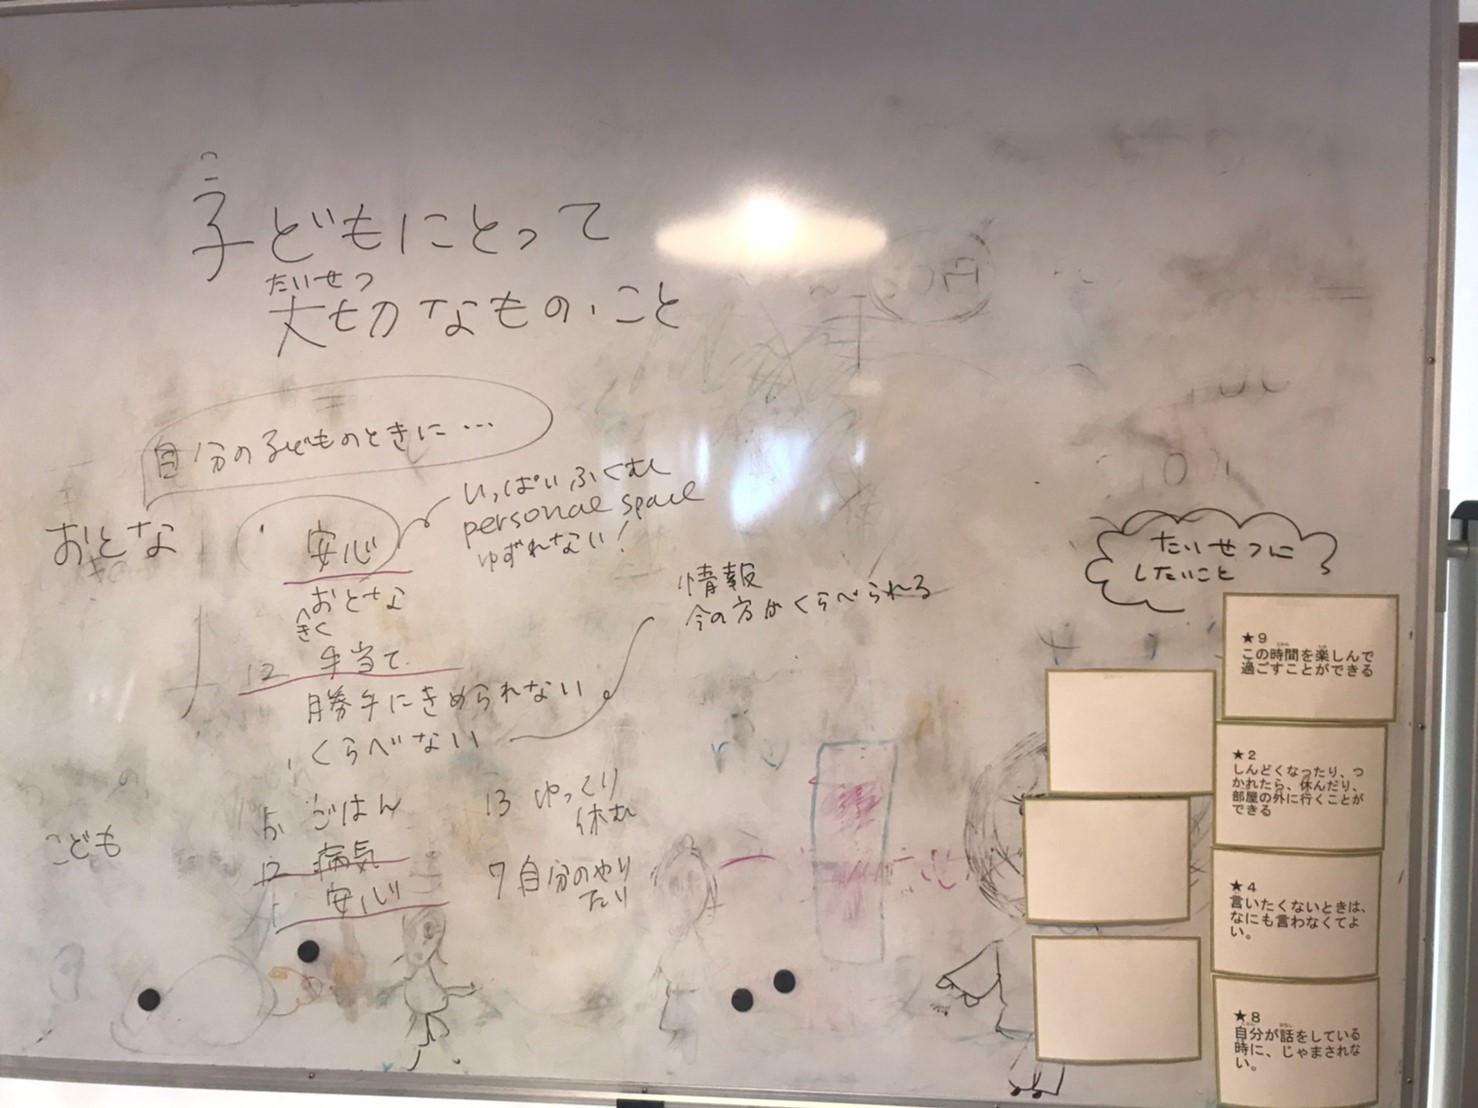 子どもにとって
たいせつ
大切なもの・こと
自分の子どものときに…
おとな
安心
いっぱいふくむ
personal space
ゆずれない!
おとな
きく
12 手当て
勝手にきめられない
くらべない
情報
今の方がくらべられる
こども
5 ごはん
12 病気
1 安心
13 ゆっくり
休む
7 自分のやり
たり
たいせつに
したいこと
★9
この時間を楽しんで
過ごすことができる
★2
しんどくなったり、つ
かれたら、休んだり、
部屋の外に行くことが
できる
★4
言いたくないときは、
なにも言わなくてよ
い。
★8
自分が話をしている
時に、じゃまされな
い。